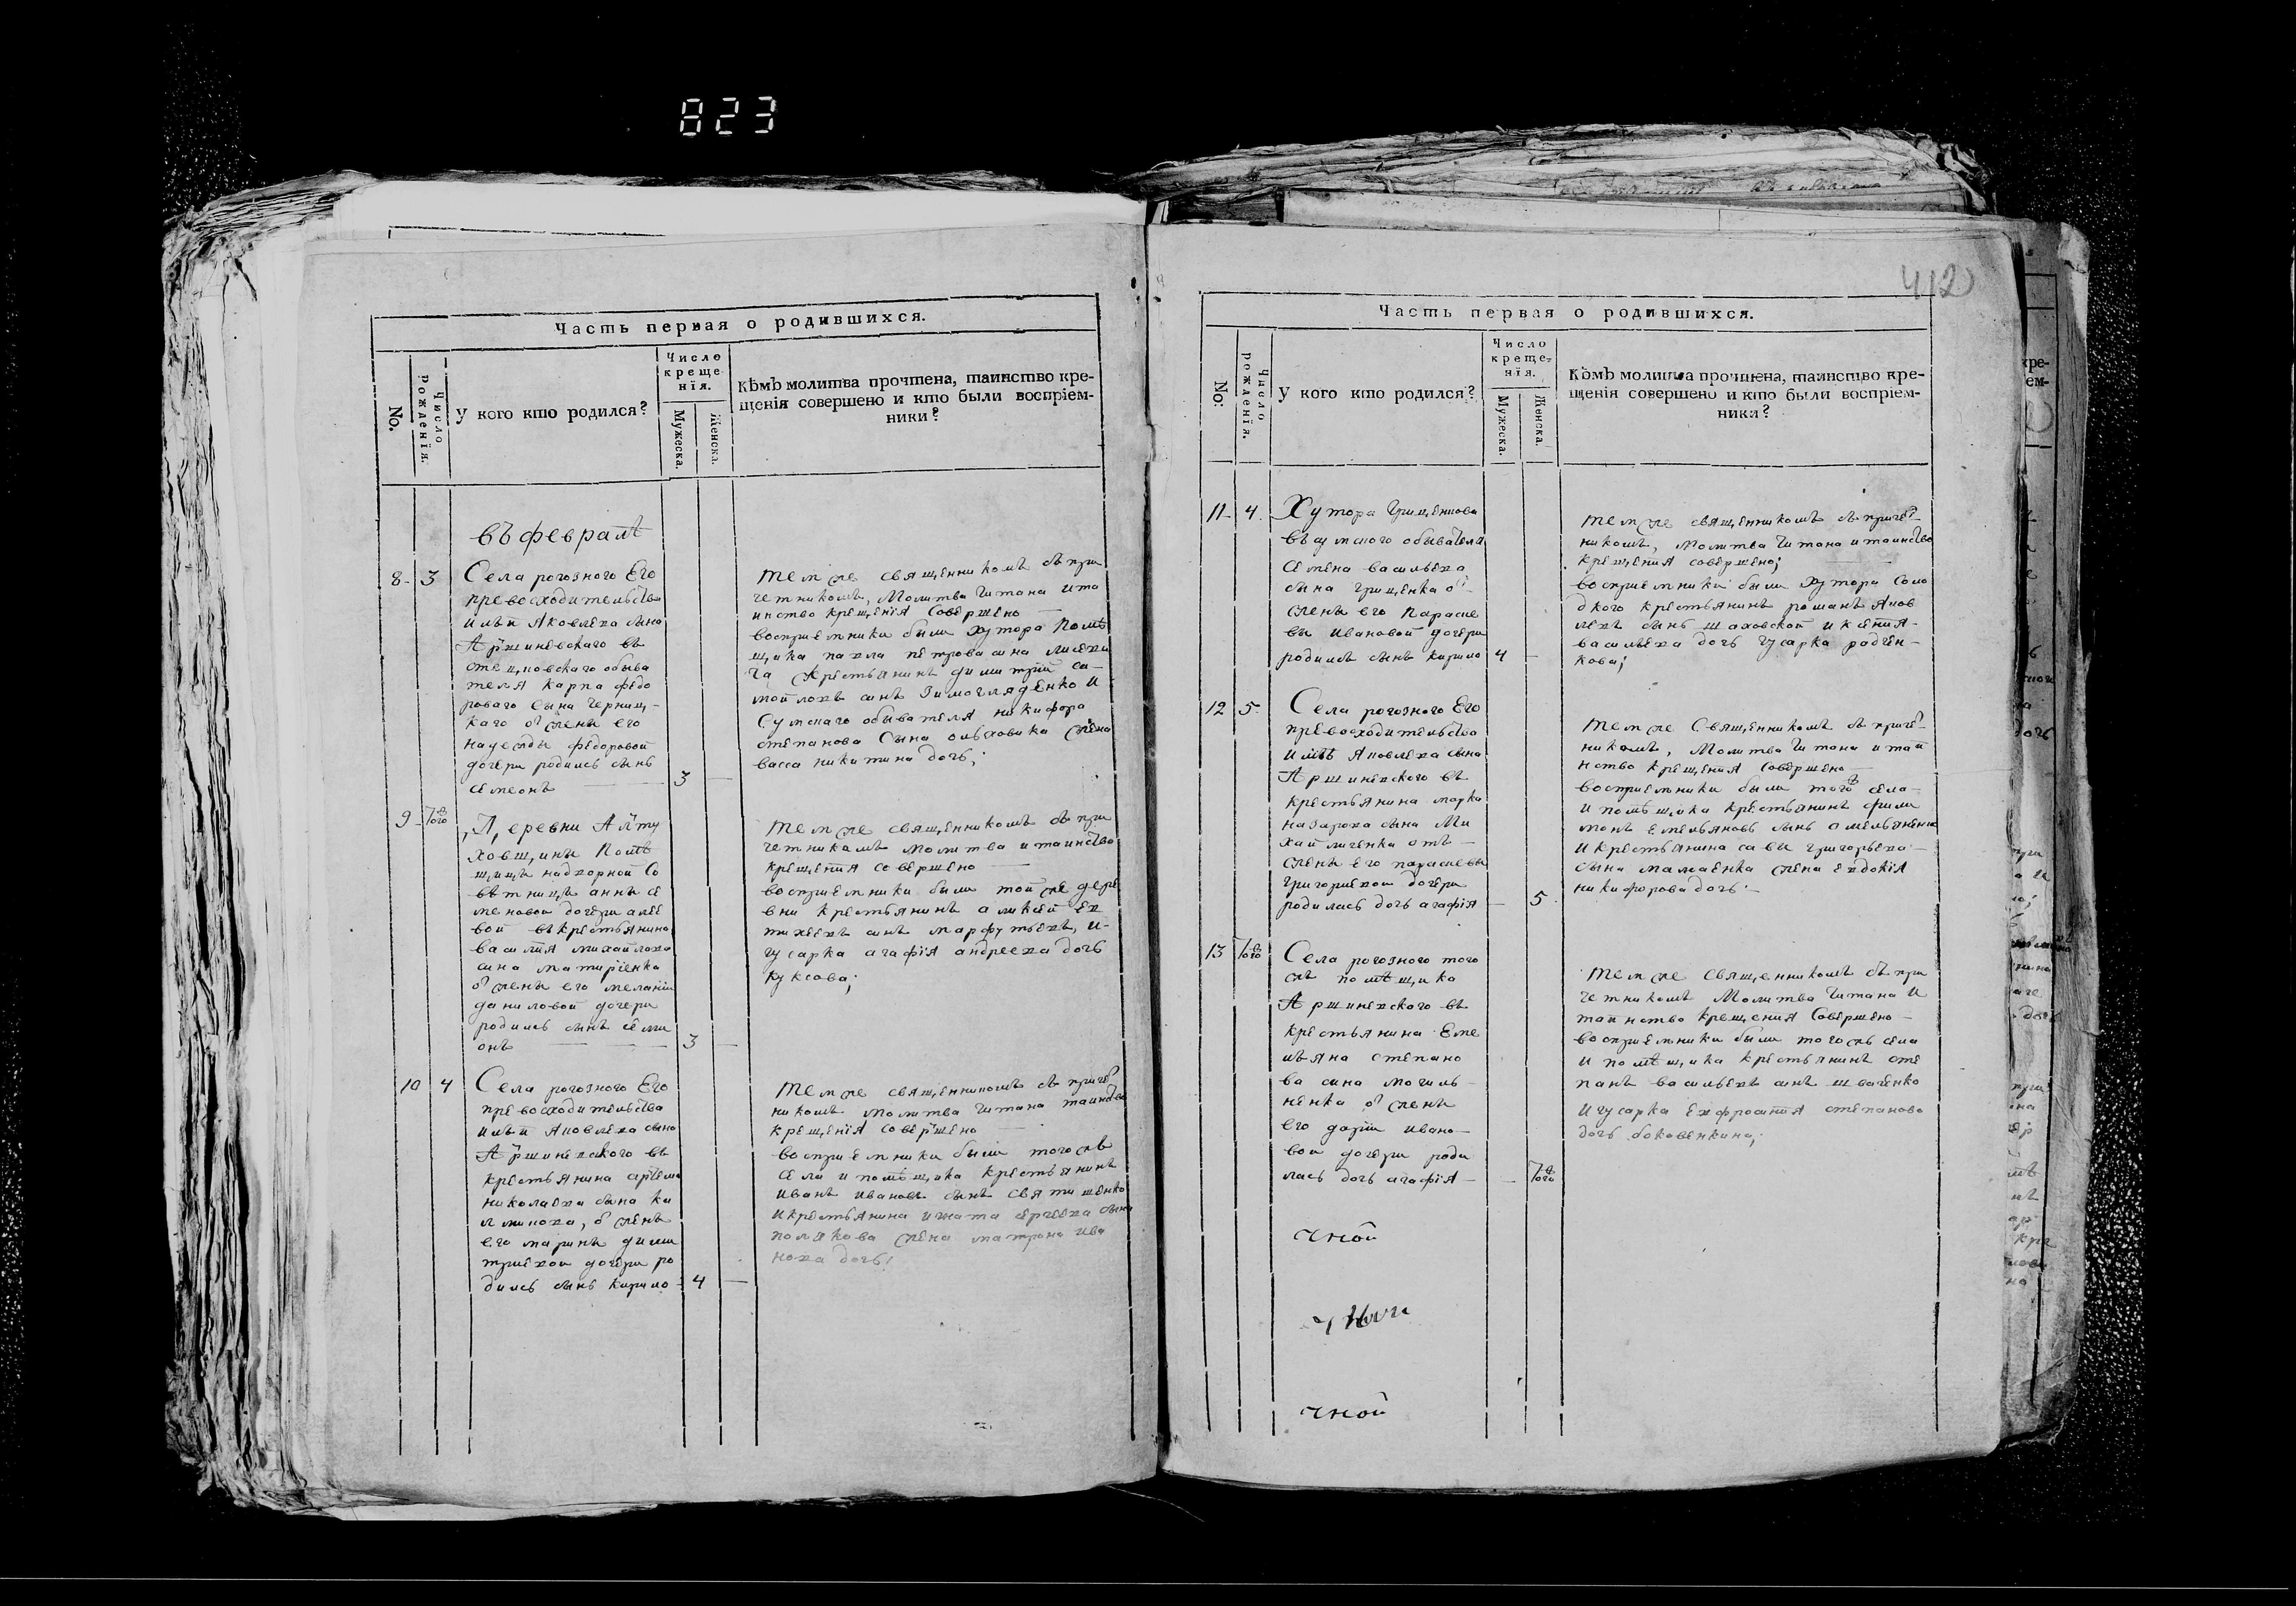 823
Часть первая о родившихся.
No.
Число рожденїя.
У кого кто родился?
Число
креще-
нїя.
Мужеска.
Женска.
Кѣмъ молитва прочтена, таинство кре-
щенїя совершено и кто были воспрїем-
ники?
въ февралѣ
8 3 Села рогозного Его
превосходительства
Ильи Яковлева сына
Аршиневского въ
оте
телья Карпа федо
роваго сына черниц-
каго от жены его
надежды федоровой
дочери родилсь сынъ
семеонъ 3
тем же священникомъ съ при
четникомъ, молитва читана и та
инство крещенїя совершено
восприемники были хутора помѣ
щика павла петрова сина
крестьянинъ димитрїй са-
мойловъ синъ Зимогляденко и
Сумского обывателя никифора
степанова сына ольховика жена
васса никитина дочь;
9 7го Деревни Алту
ховщины помѣ
щицы надворной Со
вѣтницы анны се
меновой дочери алее
вой въ крестьянина
василїя михайлова
сина
от жены его меланїи
даниловой дочери
родилсь сынъ семи
онъ 3
тем же священникомъ съ при
четникамъ молитва и таинство
крещенїя совершено
восприемники были той же дере
вни крестьянинъ аликсѣй
синъ марфутьевъ, и-
гусарка агафїя андреева дочь
куксова;
10 4 Села рогозного Его
превосходительства
Ильи Яковлева сына
Аршиневского въ
крестьянина артема
николаева сына ка
от жены
его марины дими
трїевои дочери ро
дилсь сынъ кирило 4
тем же священникомъ съ приче
никомъ молитва читана таинство
крещенїя совершено
восприемники были того жъ
села и помѣщика крестьянинъ
иванъ ивановъ сынъ
и крестьянина игната сергеева сына
полякова жена матрона ива
нова дочь;
412
Часть первая о родившихся.
No:
Число рожденїя.
У кого кто родился?
Число
креще-
нїя.
Мужеска.
Женска.
Кѣмъ молитва прочтена, таинство кре-
щенїя совершено и кто были воспрїем-
ники?
11 4 Хутора Грищенкова
въ сумского обывателя
Семена васильева
сына грищенка от
жены его параске
вы ивановой дочери
родилсь сынъ кирило 4
тем же священникомъ съ приче
никомъ, молитва читана и таинство
крещенїя совершено;
восприемники были хутора
крестьянинъ романъ яков
левъ сынъ шаховской и ксения
васильева дочь гусарка радчен-
кова;
12 5 Села рогозного Его
превосходительства
Ильи Яковлева сына
Аршиневского въ
крестьянина марка
назарова сына Ми
хайличенка отъ
жены его параскевы
григориевои дочери
родилась дочь агафїя 5
тем же Священникомъ съ приче
никомъ, молитва читана и таи
нство крещения совершено
восприемники были того жъ села
и помѣщика крестьянинъ фили
монъ емельяновъ сынъ омельяненко
и крестьянина савы григорьева
сына жена евдокїя
никифорова дочь
13 7го Села рогозного того
жъ помѣщика
Аршиневского въ
крестьянина Еме
льяна степано
ва сина могиль
ненка от жены
его дарїи ивано
вои дочери роди
лась дочь агафїя 7го
тем же Священникомъ съ при
четникомъ молитва читана и
таинство крещения совершено
восприемники были того жъ села
и помѣщика крестьянинъ сте
панъ васильевъ синъ шваченко
и гусарка евфросинїя степанова
дочь боковенкина;